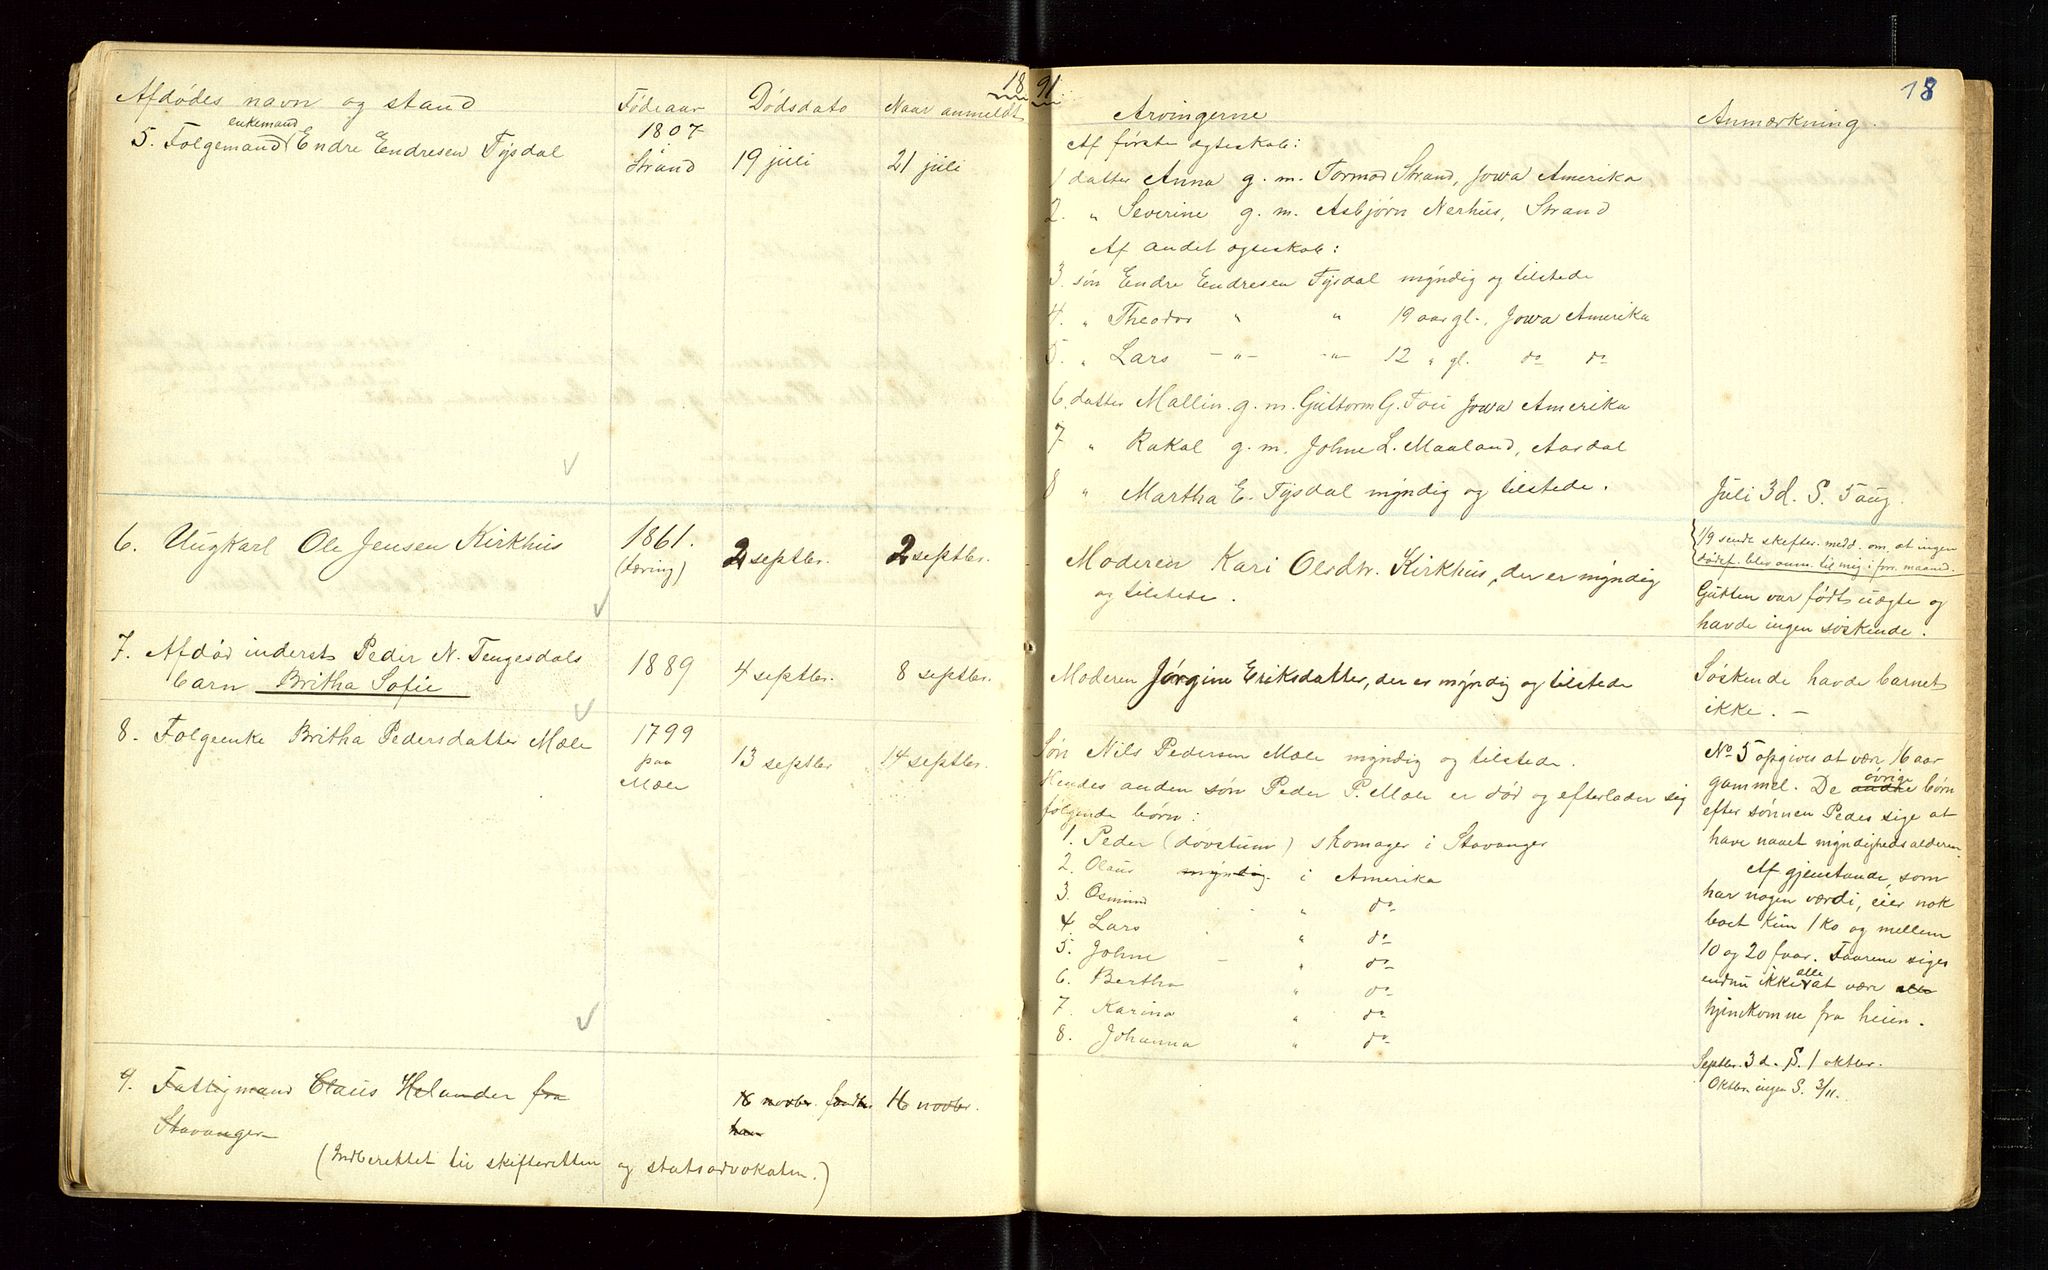 1891
18
Afdødes navn og stand
Fødeaar
Dødsdato
Naar anmeldt
5. Folgemand enkemand Endre Endresen Tysdal
1807
Strand
19 juli
21 juli
6. Ungkarl Ole Jensen Kirkhus
1861.
(tæring)
2 septbr.
2 septbr.
7. Afdød inderst Peder N. Tengesdals
barn Britha Sofie
1889
4 septbr.
8 septbr.
8. Folgeenke Britha Pedersdatter Mæle
1799
paa
Mæle
13 septbr
14 septbr.
9. Fattigmand Claus Helander fra
Stavanger
16 novbr.
16 novbr.
(Indberettet til skifteretten og statsadvokaten.)
Arvingerne
Anmærkning.
Af første ægteskab:
1 datter Anna g. m. Tormod Strand, Jowa Amerika
2. " Severine g. m. Asbjørn Nerhus, Strand
Af andet ægteskab:
3. søn Endre Endresen Tysdal myndig og tilstede
4. " Theodor " " 19 aar gl., Jowa Amerika
5. " Lars -"- -"- 12 " gl. do do
6. datter Mallin g. m. Guttorm G. Tou Jowa Amerika
7 " Rakal g. m. Johne L. Maaland, Aardal
8 " Martha E. Tysdal myndig og tilstede.
Juli 3d. S. 5 aug.
Moderen Kari Olsdtr. Kirkhus, der er myndig
og tilstede.
1/9 sende skifter. medd. om, at ingen
dødsf. blev anm. til mig i forr. maaned.
Gutten var født uægte og
havde ingen søskende.
Moderen Jørgine Eriksdatter, der er myndig og tilstede
Søskende havde barnet
ikke. —
Søn Nils Pedersen Mæle myndig og tilstede.
Hendes anden søn Peder P. Mæle er død og efterlader sig
følgende børn:
1. Peder (døvstum) skomager i Stavanger
2. Olaus myndig i Amerika
3. Osmund " do
4. Lars " do
5. Johne " do
6. Bertha " do
7. Karina " do
8. Johanna " do
No 5 opgives at være 16 aar
gammel. De andre øvrige børn
efter sønnen Peder siges at
have naaet myndighedsalderen.
Af gjenstande, som
har nogen værdi, eier nok
boet kun 1 ko og mellem
10 og 20 faar. Faarene siges
endnu ikke alle at være alle
hjemkomne fra heien.
Septbr. 3 d. S. 1 oktbr.
Oktbr. ingen S. 3/11.